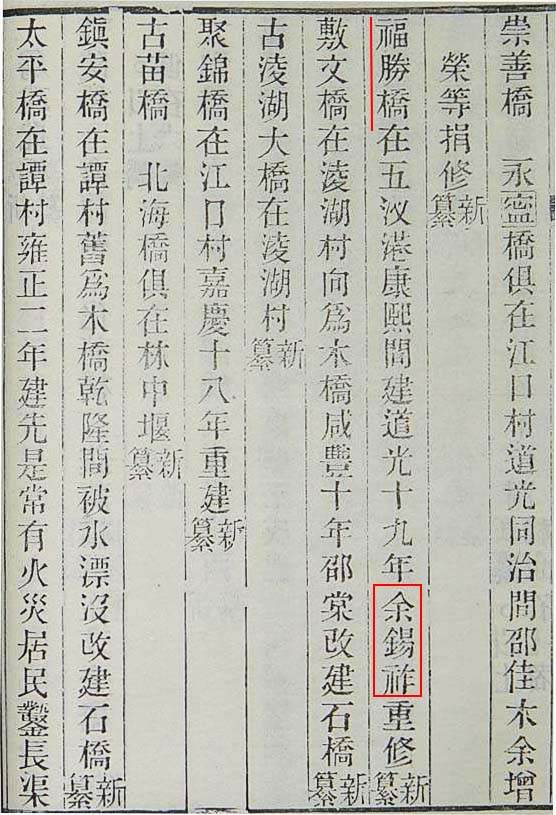 崇善橋　永寍橋俱在江口村道光同治間邵佳木余增
榮等捐修新纂
福勝橋在五汊港康熙間建道光十九年余錫祚重修新纂
敷文橋在淩湖村向爲木橋咸豐十年邵棠改建石橋新纂
古淩湖大橋在淩湖村新纂
聚錦橋在江口村嘉慶十八年重建新纂
古苗橋　北海橋俱在林中堰新纂
鎭安橋在譚村舊爲木橋乾隆間被水漂沒改建石橋新纂
太平橋在譚村雍正二年建先是常有火災居民鑿長渠